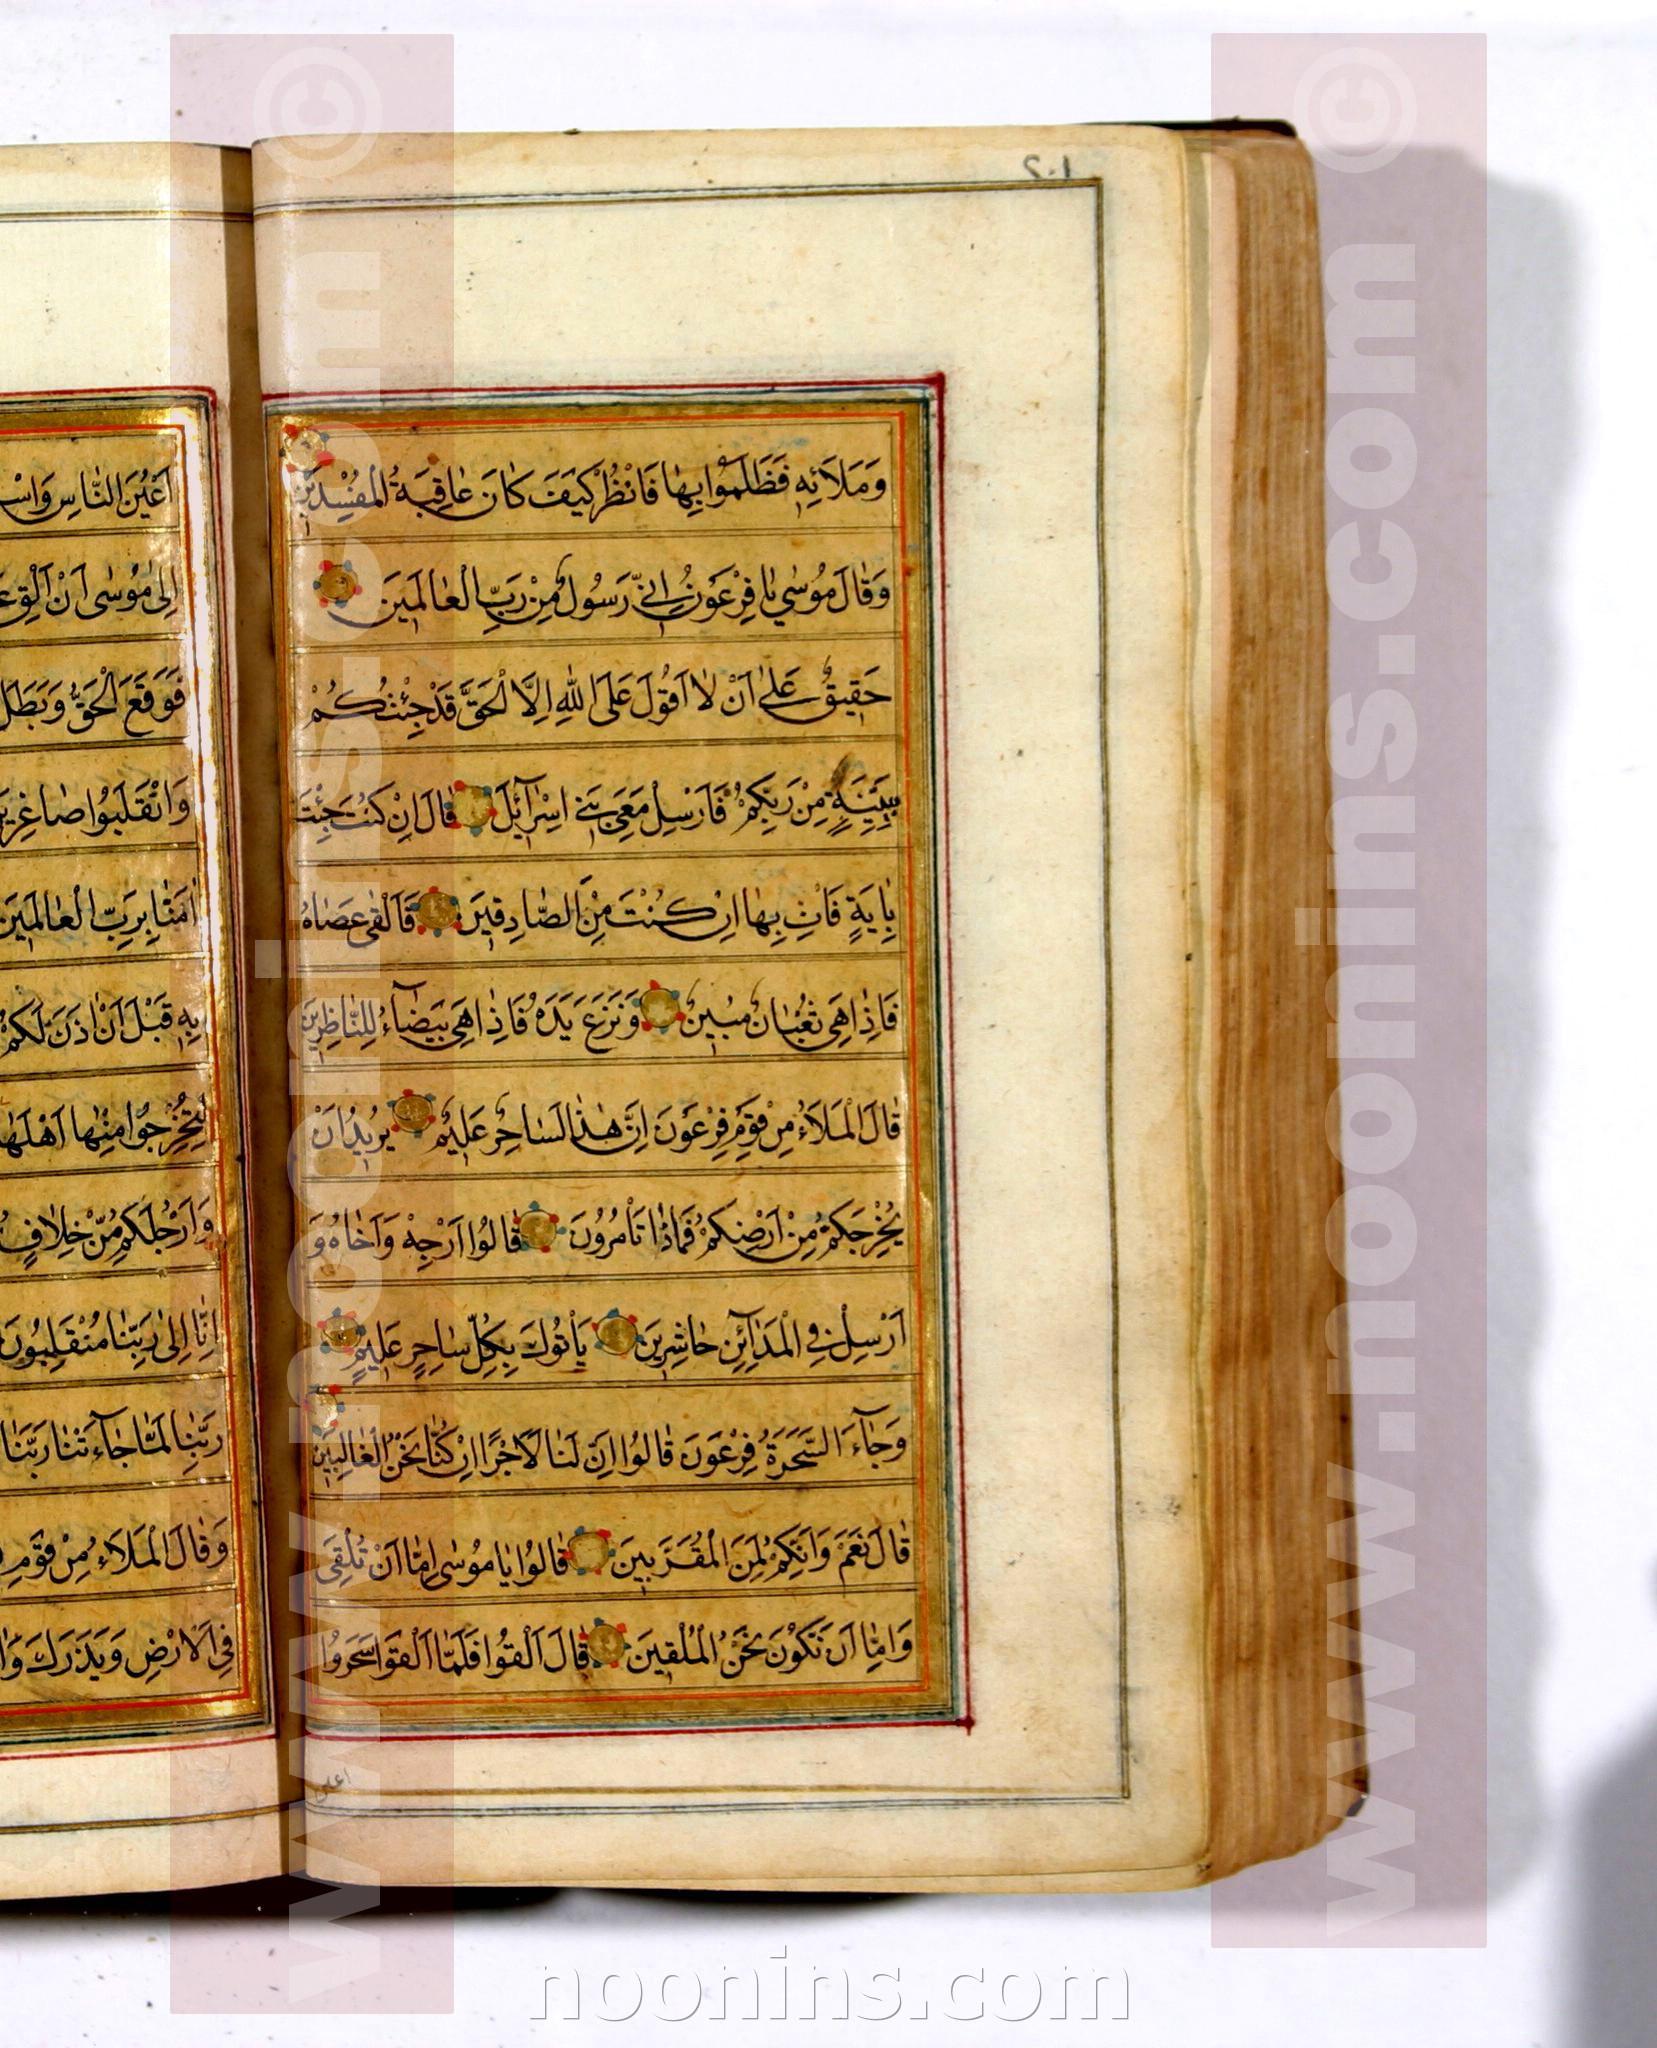 ١٠٢
وَمَلَائِهِ فَظَلَمُوا بِهَا فَانْظُرْ كَيْفَ كَانَ عَاقِبَةُ الْمُفْسِدِينَ
وَقَالَ مُوسٰى يَا فِرْعَوْنُ اِنّى رَسُولٌ مِنْ رَبِّ الْعَالَمِينَ
حَقِيقٌ عَلىٰ اَنْ لَا اَقُولَ عَلَى اللّٰهِ اِلَّا الْحَقَّ قَدْ جِئْتُكُمْ
بِبَيِّنَةٍ مِنْ رَبِّكُمْ فَاَرْسِلْ مَعِىَ بَنى اِسْرَآئِيلَ قَالَ اِنْ كُنْتَ جِئْتَ
بِاٰيَةٍ فَاْتِ بِهَا اِنْ كُنْتَ مِنَ الصَّادِقِينَ فَاَلْقٰى عَصَاهُ
فَاِذَا هِىَ ثُعْبَانٌ مُبِينٌ وَنَزَعَ يَدَهُ فَاِذَا هِىَ بَيْضَآءُ لِلنَّاظِرِينَ
قَالَ الْمَلَاءُ مِنْ قَوْمِ فِرْعَوْنَ اِنَّ هٰذَا لَسَاحِرٌ عَلِيمٌ يُرِيدُ اَنْ
يُخْرِجَكُمْ مِنْ اَرْضِكُمْ فَمَاذَا تَاْمُرُونَ قَالُوا اَرْجِهْ وَاَخَاهُ وَ
اَرْسِلْ فِى الْمَدَآئِنِ حَاشِرِينَ يَاْتُوكَ بِكُلِّ سَاحِرٍ عَلِيمٍ
وَجَآءَ السَّحَرَةُ فِرْعَوْنَ قَالُوا اِنَّ لَنَا لَاَجْرًا اِنْ كُنَّا نَحْنُ الْغَالِبِينَ
قَالَ نَعَمْ وَاِنَّكُمْ لَمِنَ الْمُقَرَّبِينَ قَالُوا يَا مُوسٰى اِمَّا اَنْ تُلْقِىَ
وَاِمَّا اَنْ نَكُونَ نَحْنُ الْمُلْقِينَ قَالَ اَلْقُوا فَلَمَّا اَلْقَوْا سَحَرُوا
اعين
اَعْيُنَ النَّاسِ
اِلىٰ مُوسٰى اَنْ اَلْقِ
فَوَقَعَ الْحَقُّ وَبَطَلَ
وَانْقَلَبُوا صَاغِرِينَ
اٰمَنَّا بِرَبِّ الْعَالَمِينَ
بِهِ قَبْلَ اَنْ اٰذَنَ لَكُمْ
لِتُخْرِجُوا مِنْهَا اَهْلَهَا
وَاَرْجُلَكُمْ مِنْ خِلَافٍ
اِنَّا اِلىٰ رَبِّنَا مُنْقَلِبُونَ
رَبِّنَا لَمَّا جَآءَتْنَا رَبَّنَا
وَقَالَ الْمَلَاءُ مِنْ قَوْمِ
فِى الْاَرْضِ وَيَذَرَكَ
www.noonins.com ©
www.noonins.com ©
noonins.com